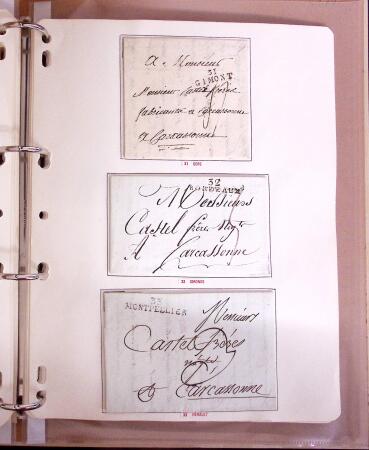 A Monsieur
31
GIMONT
Monsieur Castel
fabricant a Carcassonne
a Carcassonne
31 GERS
32
BORDEAUX
A Messieurs
Castel frères Neg.ts
A Carcassonne
32 GIRONDE
33
MONTPELLIER
Messieurs
Castel frères
a Carcassonne
33 HERAULT